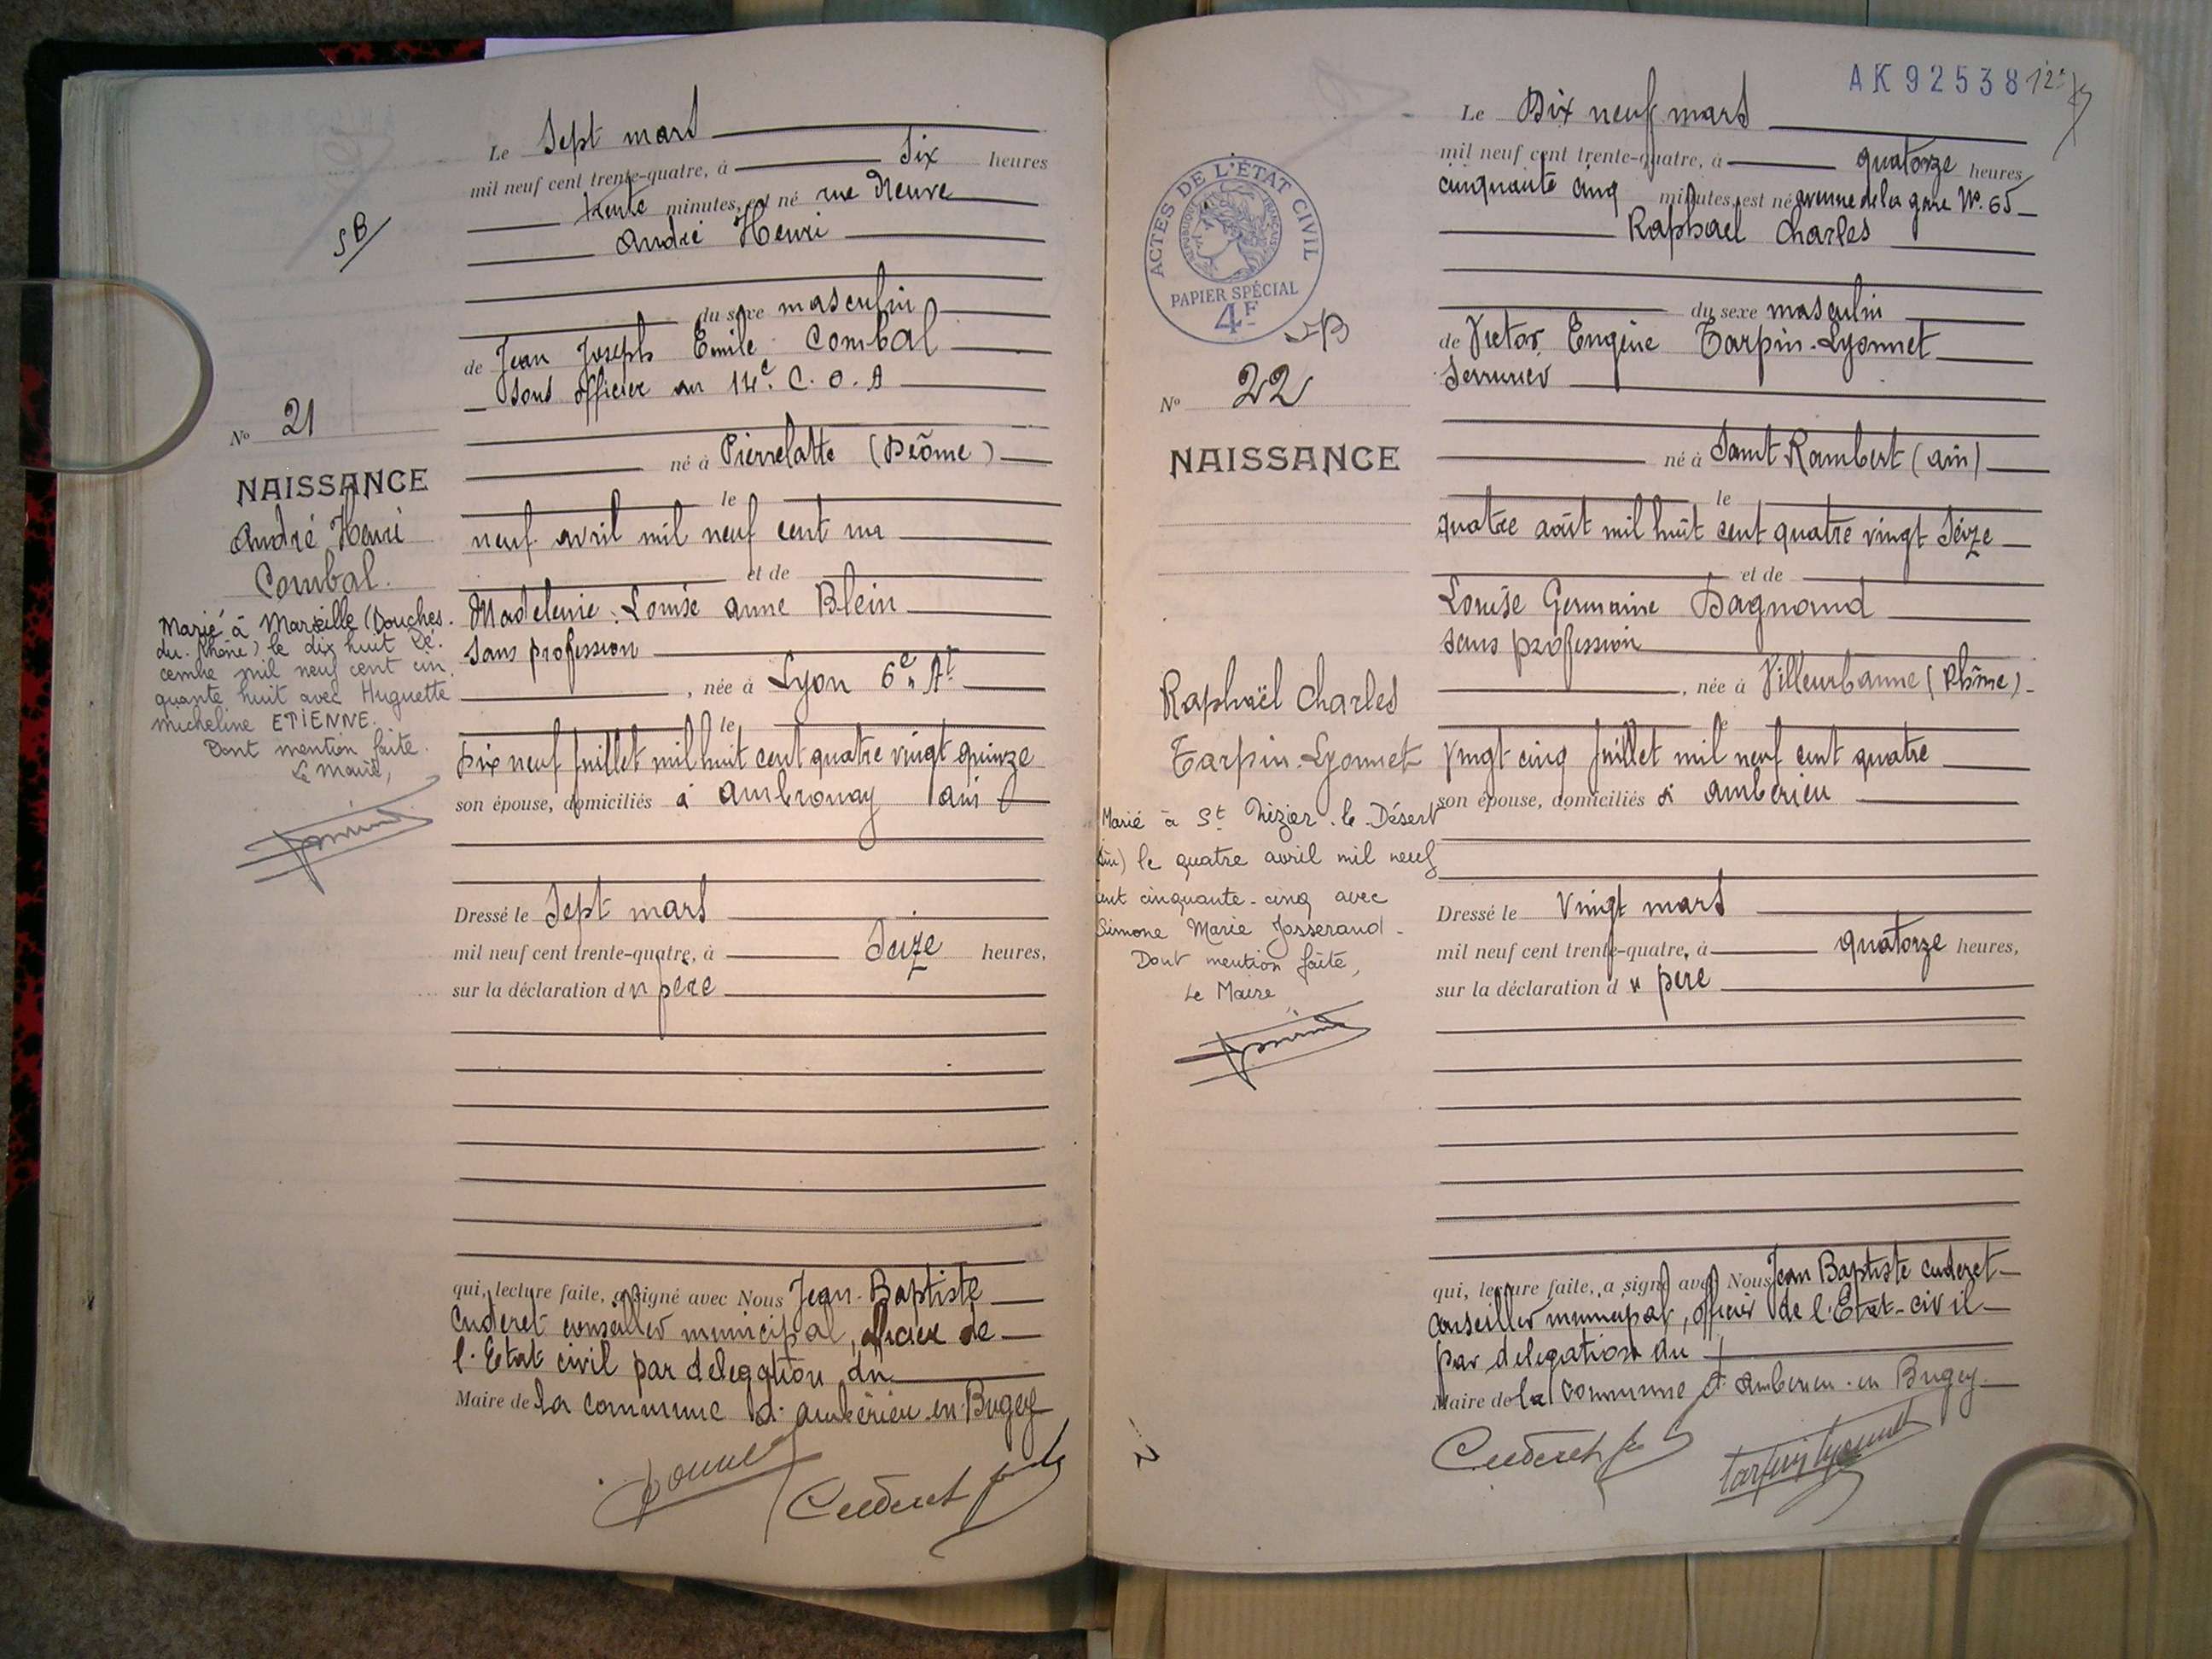 Le Sept mars
mil neuf cent trente-quatre, à Six heures
trente minutes, est né rue Neuve
André Henri
du sexe masculin
de Jean Joseph Emile Combal
Sous officier au 14e C.O.A
né à Pierrelatte (Drôme)
le
neuf avril mil neuf cent un
et de
Madeleine Louise Anne Blein
Sans profession
, née à Lyon 6e Art
le
Dix neuf Juillet mil huit cent quatre vingt quinze
son épouse, domiciliés à Ambronay Ain
Dressé le Sept mars
mil neuf cent trente-quatre, à Seize heures,
sur la déclaration du père
qui, lecture faite, a signé avec Nous Jean-Baptiste
Cuderet conseiller municipal, officier de
l'Etat civil par délégation du
Maire de la commune d'Ambérieu-en-Bugey
Cuderet
SB
No 21
NAISSANCE
André Henri
Combal.
Marié à Marseille (Bouches-
du-Rhône) le dix huit Dé-
cembre mil neuf cent cin-
quante huit avec Huguette
Micheline ETIENNE.
Dont mention faite.
Le Maire,
AK92538
Le Dix neuf mars
mil neuf cent trente-quatre, à quatorze heures
cinquante cinq minutes, est né avenue de la gare No. 65
Raphael Charles
du sexe masculin
de Victor Eugène Tarpin-Lyonnet
Serrurier
né à Saint Rambert (Ain)
le
quatre août mil huit cent quatre vingt Seize
et de
Louise Germaine Dagnaud
sans profession
, née à Villeurbanne (Rhône)
le
Vingt cinq Juillet mil neuf cent quatre
son épouse, domiciliés à Ambérieu
Dressé le Vingt mars
mil neuf cent trente-quatre, à quatorze heures,
sur la déclaration du père
qui, lecture faite, a signé avec Nous Jean Baptiste Cuderet
conseiller municipal, officier de l'Etat-civil
par délégation du
Maire de la commune d'Ambérieu-en-Bugey
Cuderet Tarpin Lyonnet
ACTES DE L'ÉTAT CIVIL
RÉPUBLIQUE FRANÇAISE
PAPIER SPÉCIAL
4F
SB
No 22
NAISSANCE
Raphaël Charles
Tarpin-Lyonnet
Marié à St Nizier-le-Désert
Ain) le quatre avril mil neuf
cent cinquante-cinq avec
Simone Marie Josserand-
Dont mention faite,
Le Maire